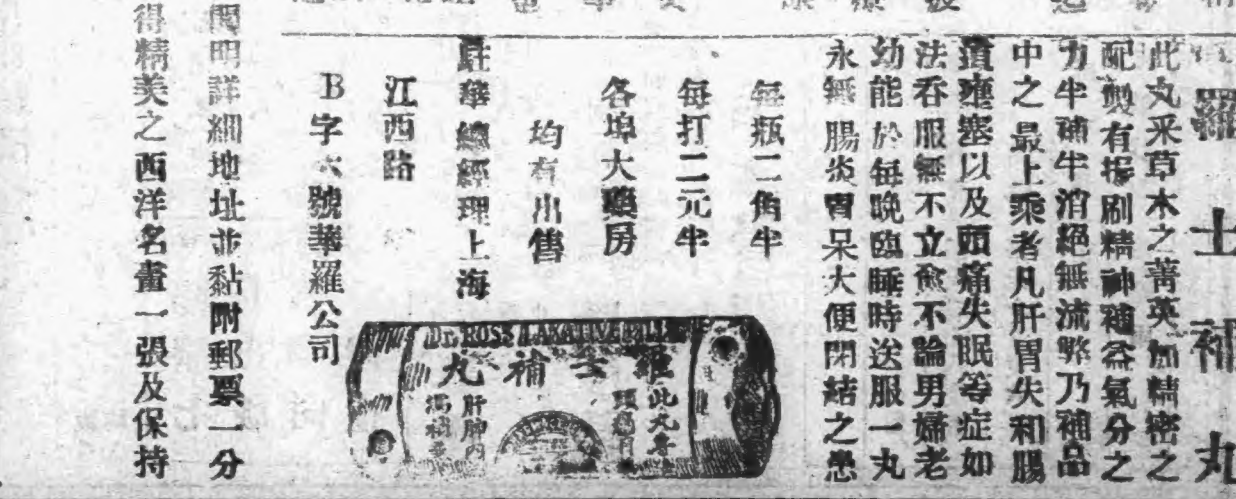 羅士補丸
此丸采草木之菁英加精密之
配製有振刷精神補益氣分之
力半補半消絕無流弊乃補品
中之最上乘者凡肝胃失和腸
道壅塞以及頭痛失眠等症如
法吞服無不立愈不論男婦老
幼能於每晚臨睡時送服一丸
永無腸炎胃呆大便閉結之患
每瓶二角半
每打二元半
各埠大藥房
均有出售
駐華總經理上海
江西路
B字六號華羅公司
DR. ROSS LAXATIVE PILLS
羅士補丸
此丸專
肝肺內
開明詳細地址並黏附郵票一分
得精美之西洋名畫一張及保持